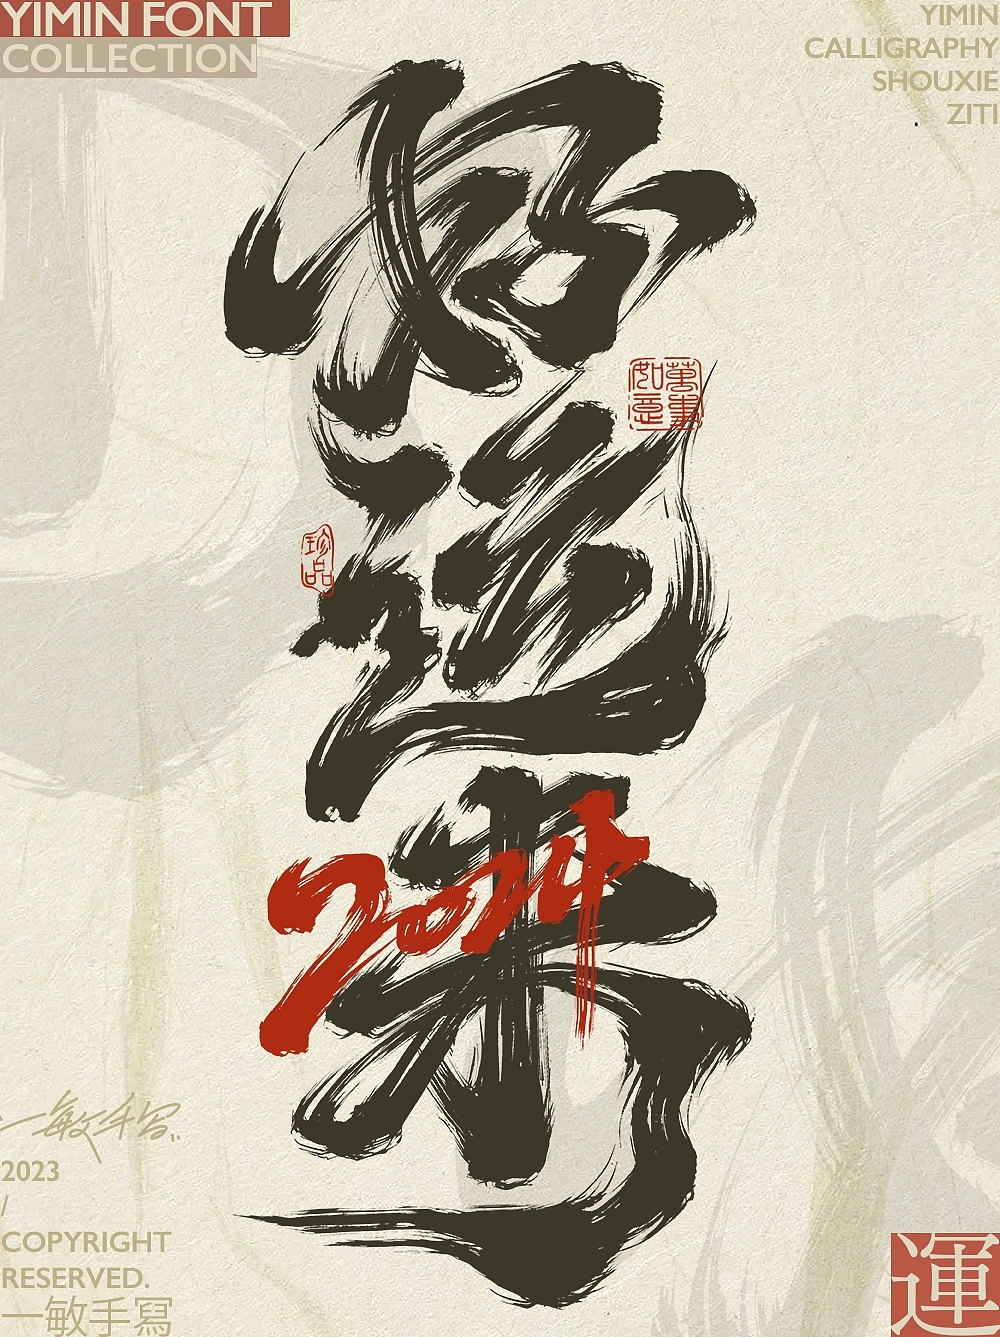 YIMIN FONT
COLLECTION
YIMIN
CALLIGRAPHY
SHOUXIE
ZITI
好
运
来
萬事
如意
珍品
2024
一敏手寫
2023
/
COPYRIGHT
RESERVED.
一敏手寫
運